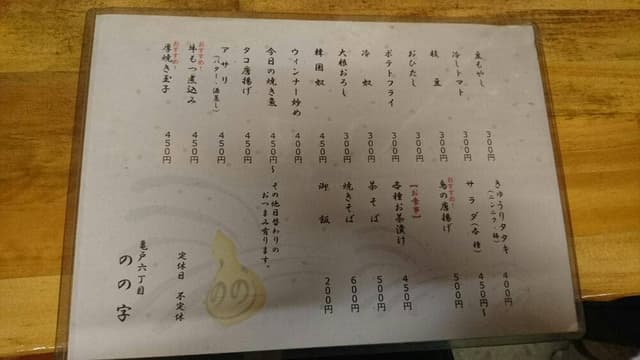 豆もやし 300円
冷しトマト 300円
枝豆 300円
おひたし 300円
ポテトフライ 300円
冷奴 300円
大根おろし 300円
韓国奴 450円
ウィンナー炒め 400円
今日の焼き魚 450円~
タコ唐揚げ 450円
アサリ 450円
(バター、酒蒸し)
おすすめ!
牛もつ煮込み 450円
おすすめ!
厚焼き玉子 450円
きゅうりタタキ 400円
(ニンニク、梅)
サラダ(各種) 450円~
おすすめ!
鳥の唐揚げ 500円
【お食事】
各種お茶漬け 450円
茶そば 500円
焼きそば 600円
御飯 200円
その他日替わりの
おつまみ有ります。
のの
定休日 不定休
亀戸六丁目
のの字